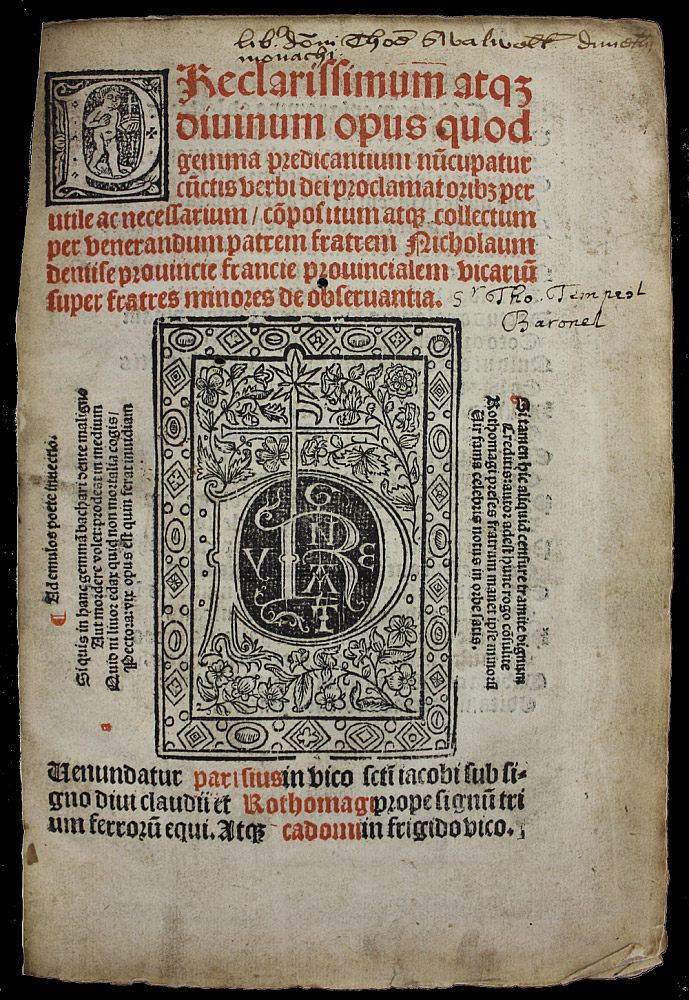 lib. dõni Thoẽ Swalwell
monachi
PReclarissimum atqꝫ
diuinum opus quod
gemma predicantium nũcupatur
cũctis verbi dei proclamatoribꝫ per
utile ac necessarium / cõpositum atqꝫ collectum
per venerandum patrem fratrem Nicholaum
deniise prouincie francie prouincialem vicariũ
super fratres minores de obseruantia.
Sr Tho. Tempest
Baronet
Ad emulos poete inuectio.
Si quis in hanc gemmã bachari dente maligno
Aut mordere volet: prodeat in medium
Quid ni liuor edax quid non mortalia cogis /
Pectora: vix opus est quin ferat inuidiam
Si tamen hic aliquid censure tramite dignum
Creditis: autor adest hunc rogo cõsulite
Rothomagi preses fratrum manet ipse minorũ
Vir fama celebris notus in orbe satis.
V R E
Uenundatur parisius in vico scti iacobi sub si-
gno diui claudii et Rothomagi prope signũ tri
um ferrorũ equi. Atqꝫ cadomi in frigido vico.